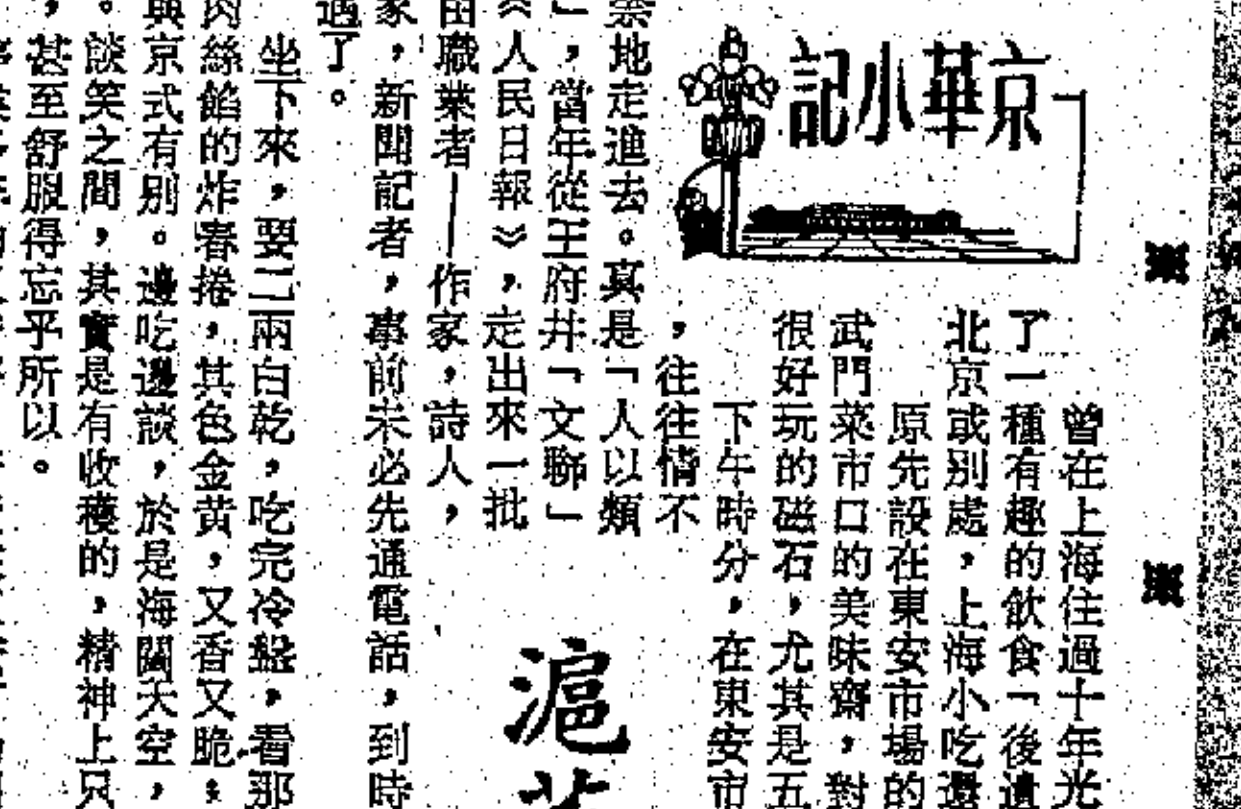 京華小記
曾在上海住過十年光
了一種有趣的飲食「後遺
北京或別處,上海小吃還
原先設在東安市場的
武門菜市口的美味齋,對
很好玩的磁石,尤其是五
下午時分,在東安市
,往往情不
禁地走進去。真是「人以類
」,當年從王府井「文聯」
《人民日報》,走出來一批
由職業者——作家,詩人,
家,新聞記者,事前未必先通電話,到時
遇了。
坐下來,要二兩白乾,吃完冷盤,看那
肉絲餡的炸春捲,其色金黃,又香又脆,
與京式有別。邊吃邊談,於是海闊天空,
。談笑之間,其實是有收穫的,精神上只
,甚至舒服得忘乎所以。
滬